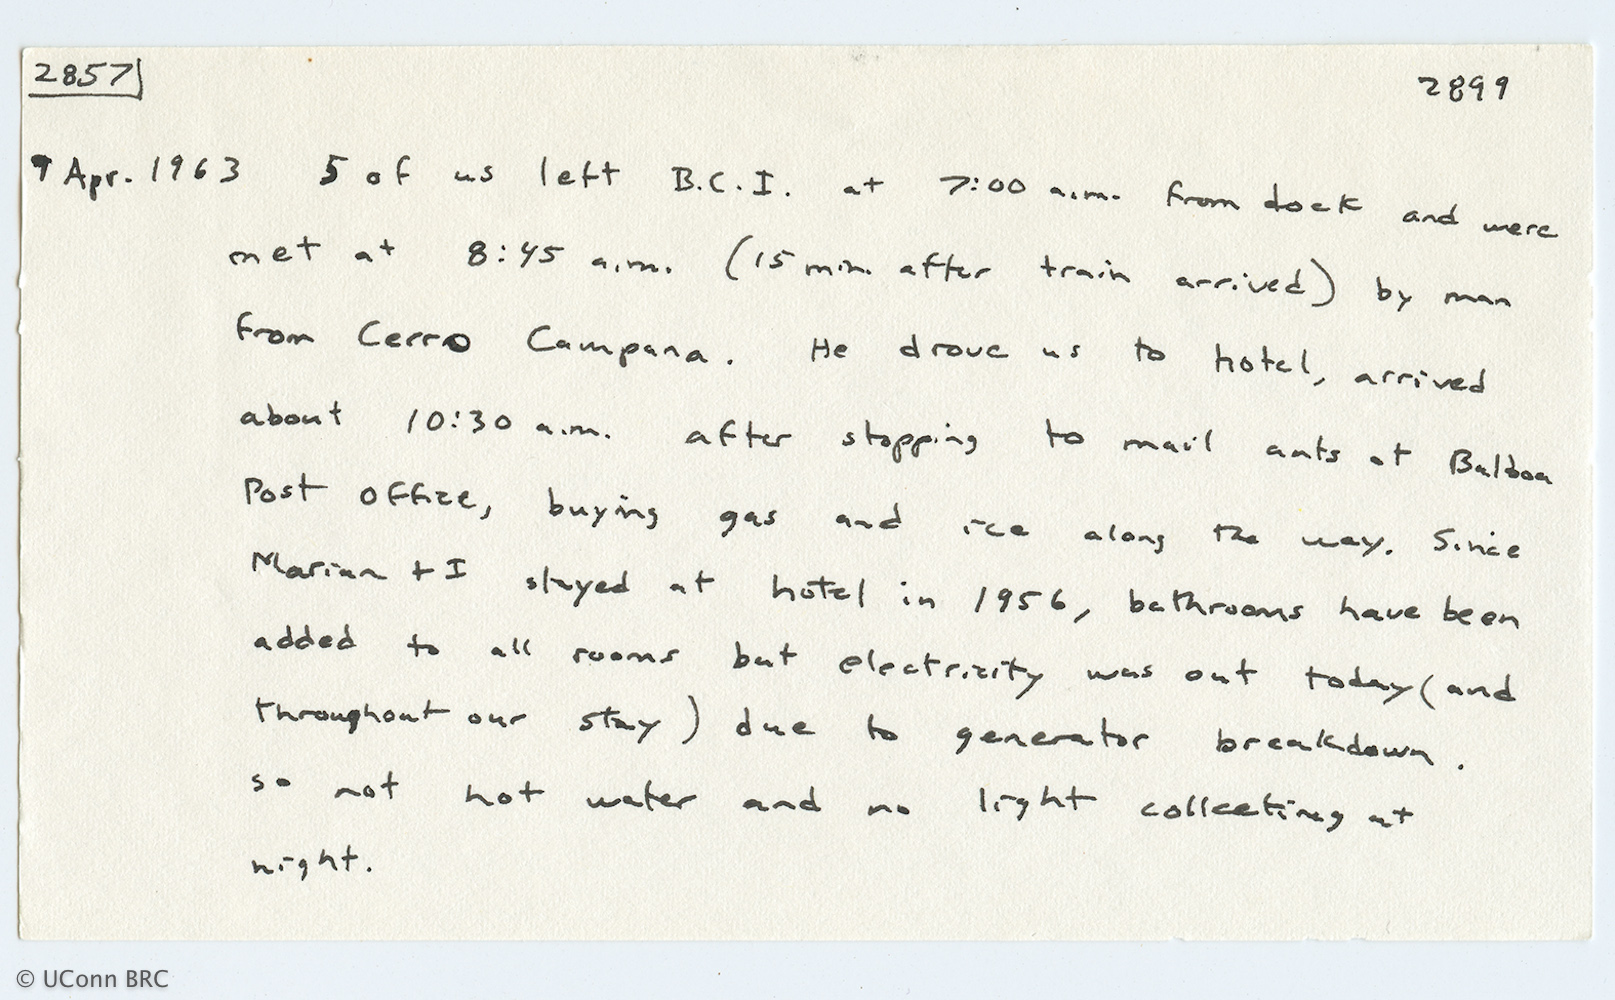 2857 2899
9 Apr. 1963 5 of us left B.C.I. at 7:00 a.m. from dock and were
met at 8:45 a.m. (15 min. after train arrived) by man
from Cerro Campana. He drove us to hotel, arrived
about 10:30 a.m. after stopping to mail ants at Balboa
Post office, buying gas and ice along the way. Since
Marian + I stayed at hotel in 1956, bathrooms have been
added to all rooms but electricity was out today (and
throughout our stay) due to generator breakdown.
so not hot water and no light collecting at
night.
© UConn BRC